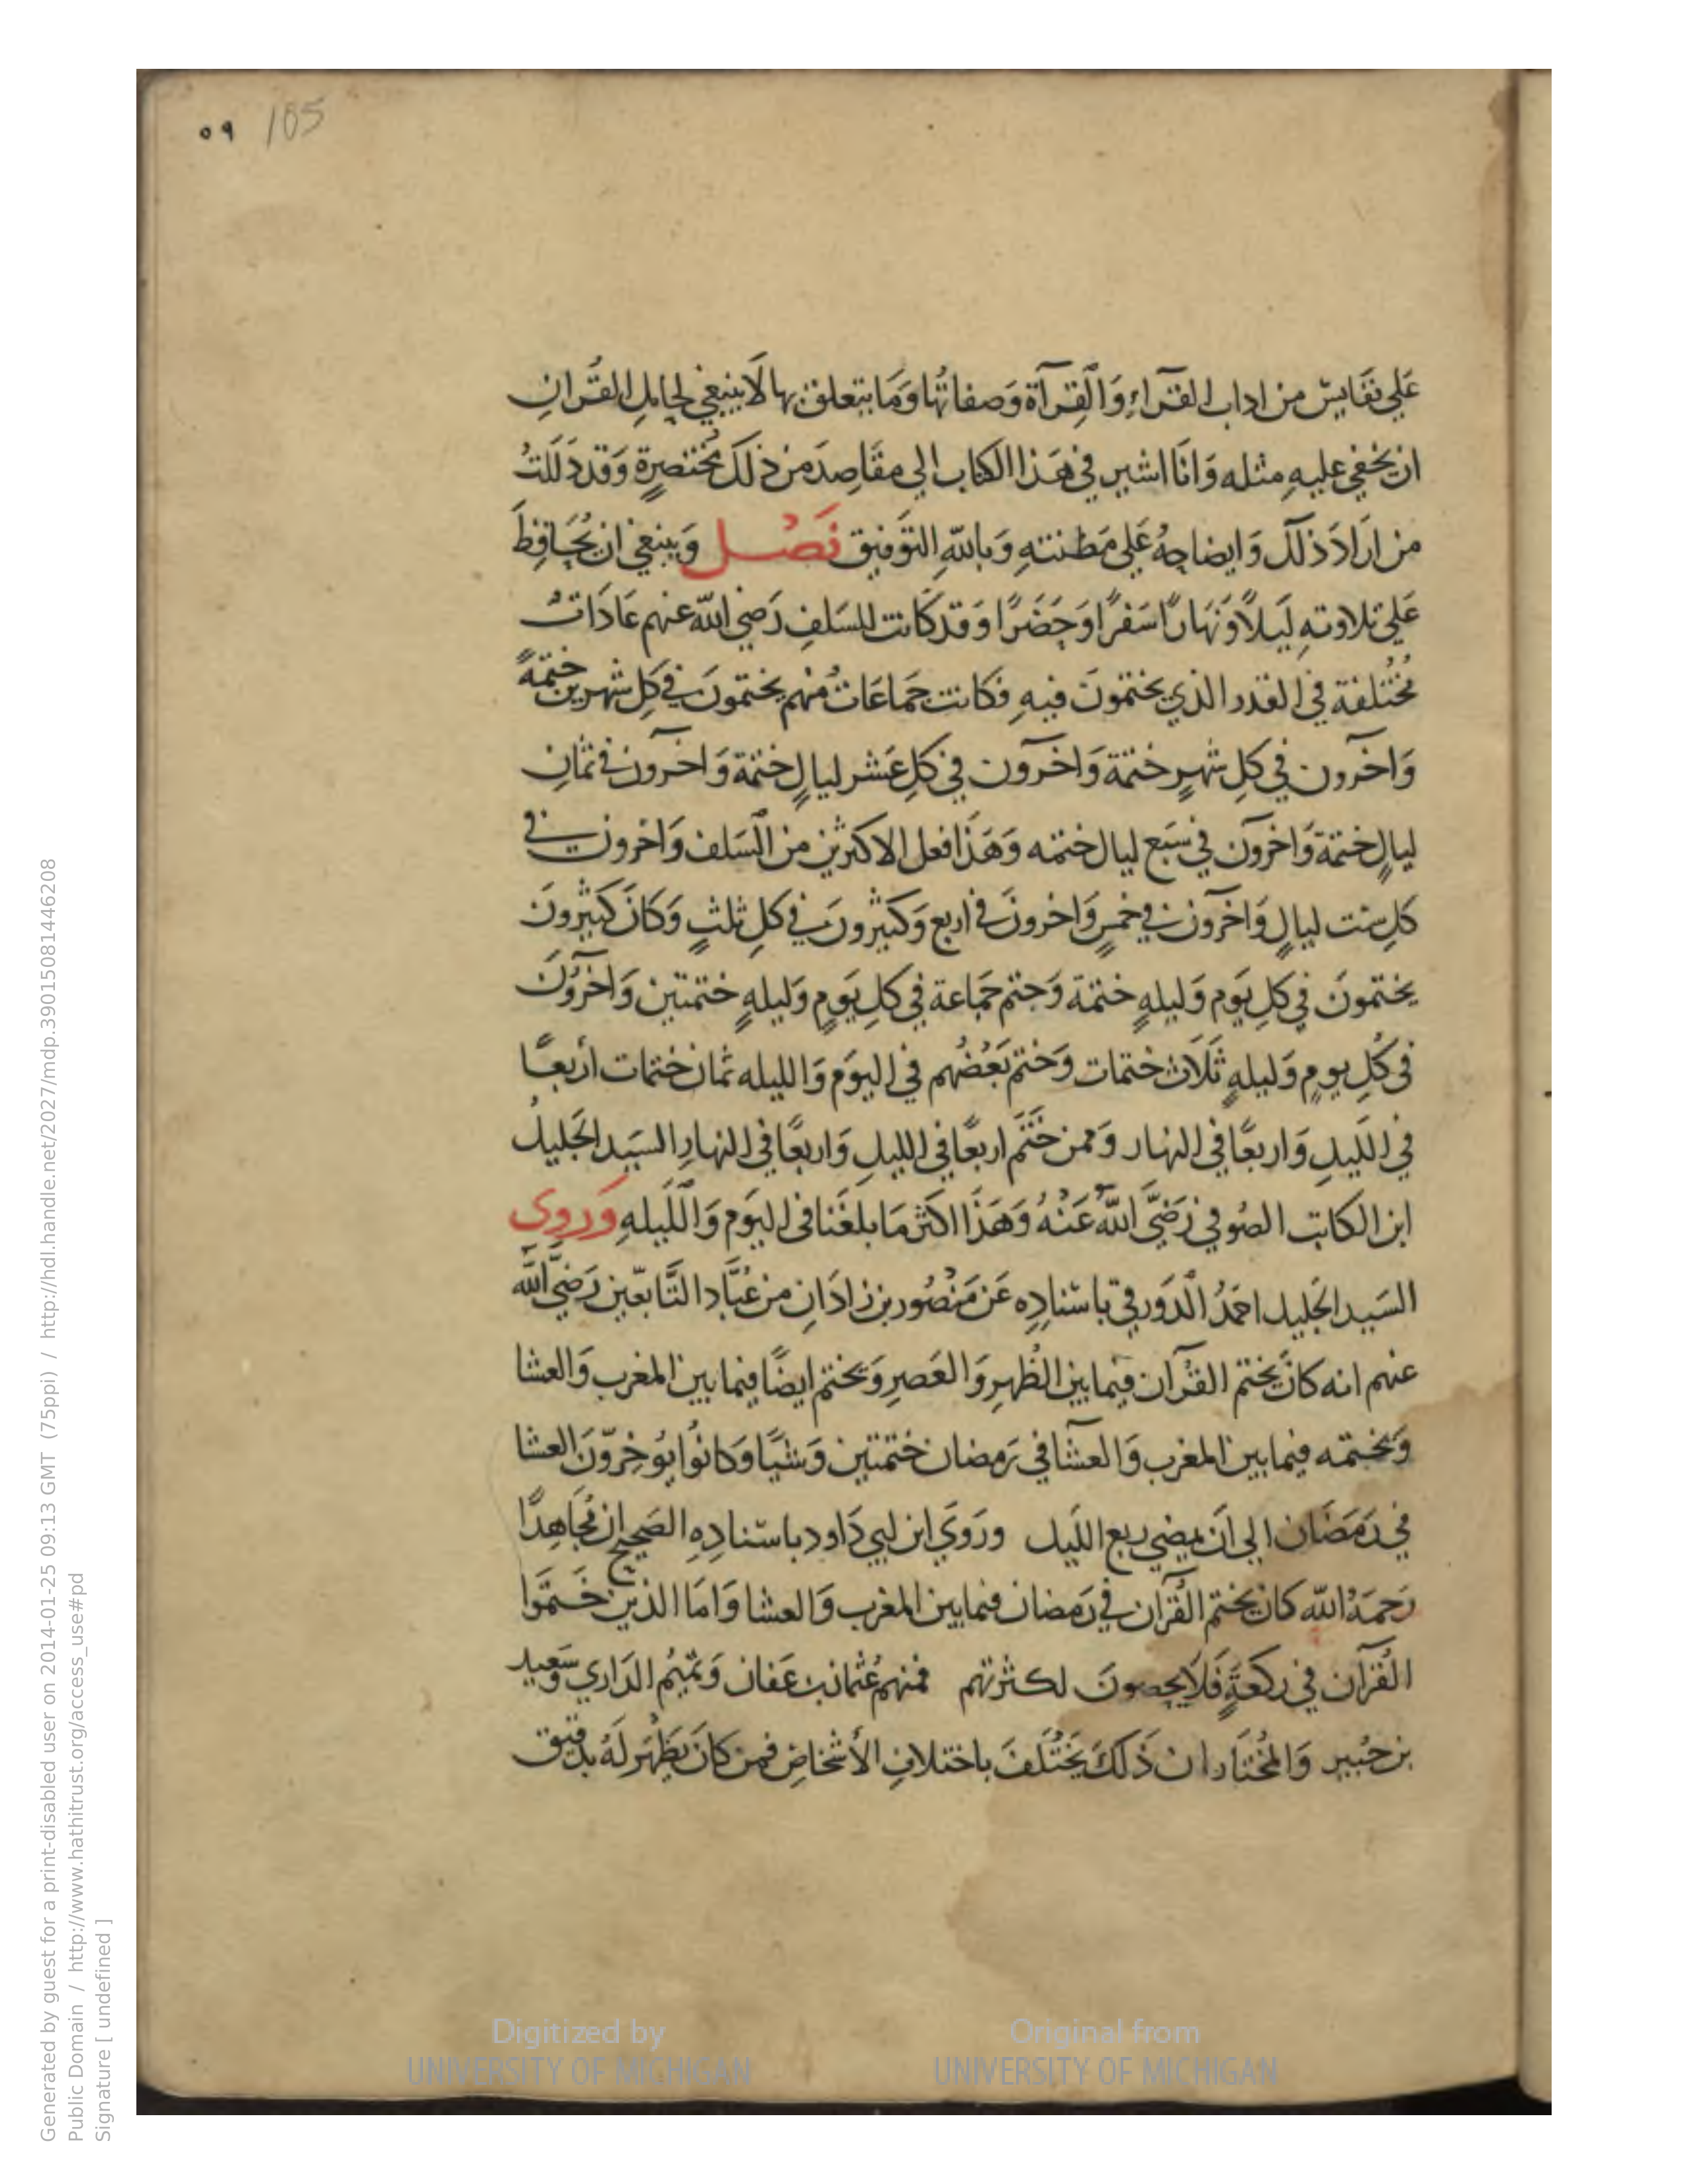 ٥٩ 185
عَلي نفَايسّ من اداب القرّاءِ وَالقِرآة وَصفاتهُا وَمَا يتعلق بها لاَ ينبغي لحامِل القُرانِ
ان يخفي عليهِ مثله وَانَا اشير في هَذا الكتاب الي مقَاصِدَ من ذلكَ مُختصرةٍ وَقد دَلَلتُ
من ارَادَ ذلكَ وَايضاحِهُ عَلي مَظنتهِ وَبالله التوَفيق فَصْل وَينبغي ان يُحَافِظَ
عَلي تلاوتهِ لَيلاً وَنَهَارًا سَفرًا وَحَضَرًا وَقد كَانت للسَلفِ رَضي الله عنهم عَادَاتٌ
مُختُلفة في القدر الذي يختمُونَ فيهِ فكانت جمَاعَاتٌ منهم يختمونَ في كلِ شهرين ختمَةً
وَاخرَون في كلِ شهرٍ ختمَة وَاخرَون في كلِ عَشر ليالٍ ختمَة وَاخرون في ثمانِ
ليالٍ ختمَة وَاخرَون في سَبَع ليال ختمه وَهَذَا فعل الاكثرين من السَلف وَاخرون في
كلِ ست ليالٍ وَاخرَون في خمسٍ وَاخرونَ في اربع وَكثيرونَ في كلِ ثلثٍ وَكانَ كَثيرونَ
يختمونَ في كلِ يَوم وَليلهٍ ختمَة وَختم جمَاعة في كلِ يَومٍ وَليلهٍ ختمتين وَاخرُونَ
في كُلِ يومٍ وَليلهٍ ثَلَاث ختمات وَختم بَعُضُهم في اليوَم وَالليله ثمان ختمات أربعًا
في اللَيلِ وَاربعًا في النهار وَممن خَتَم اربعًا في الليلِ وَاربعًا في النهارِ السَيد الجَليلُ
ابن الكاتبِ الصُوفي رَضيَّ اللهُ عَنْهُ وَهَذَا اكثر مَا بلغَنا في اليوَم وَاللَيلهِ وَروي
السَيد الجَليل احمَدُ الدَورقي باسنادِه عَن مَنْصُور بن زادَانِ من عُبَّاد التَّابعّين رَضيَّ اللَّه
عنهم انه كانَ يختم القُرآن فيما بين الظُهرِ وَالعَصرِ وَيختم ايضًا فيما بين المغرب وَالعشا
وَيختمه فيما بين المغرب وَالعشآ في رَمضان ختمتين وَشيًا وَكانُوا يوُخِرّونَ العشا
في رَمَضَان الي اَن يمضي ربع اللَيل ورَوَي ابن ابي دَاود باسنادِهِ الصَحيح ان مُجاهِدًا
رَحمَهُ اللهّ كان يختم القُرَان في رَمضان فيما بين المغرب وَالعشا وَامَا الذين خَتمَوا
القُرآن في ركعَةٍ فَلَا يحصونَ لكثرتهم فمنهم عُثمان بن عَفان وَتميُم الدَاري وَسَعيد
بن جُبير وَالمُختَار ان ذَلكَ يَختُلفَ باختلافِ الأشخاصِ فمن كانَ يَظهَر لَهُ بدقيق